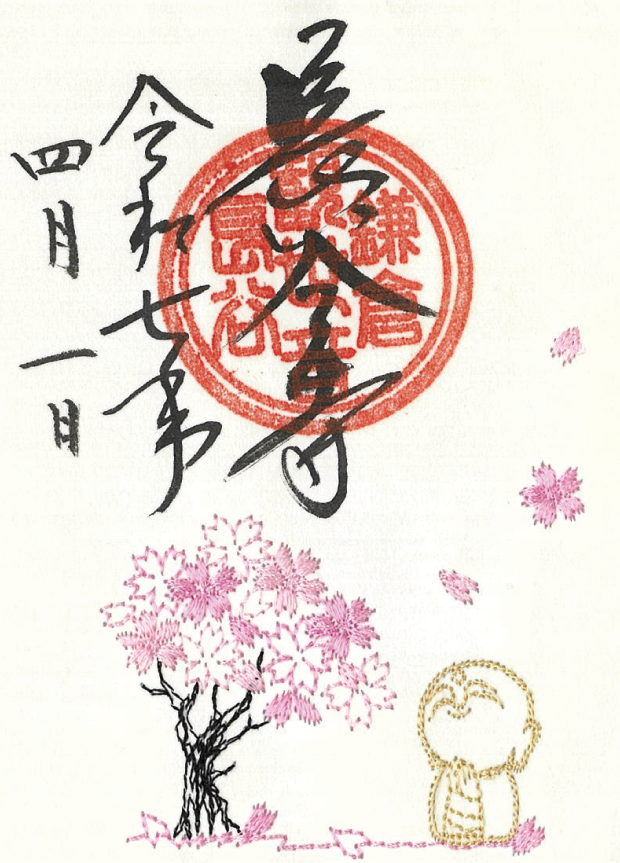 長谷寺
鎌倉
長谷
令和七年
四月一日